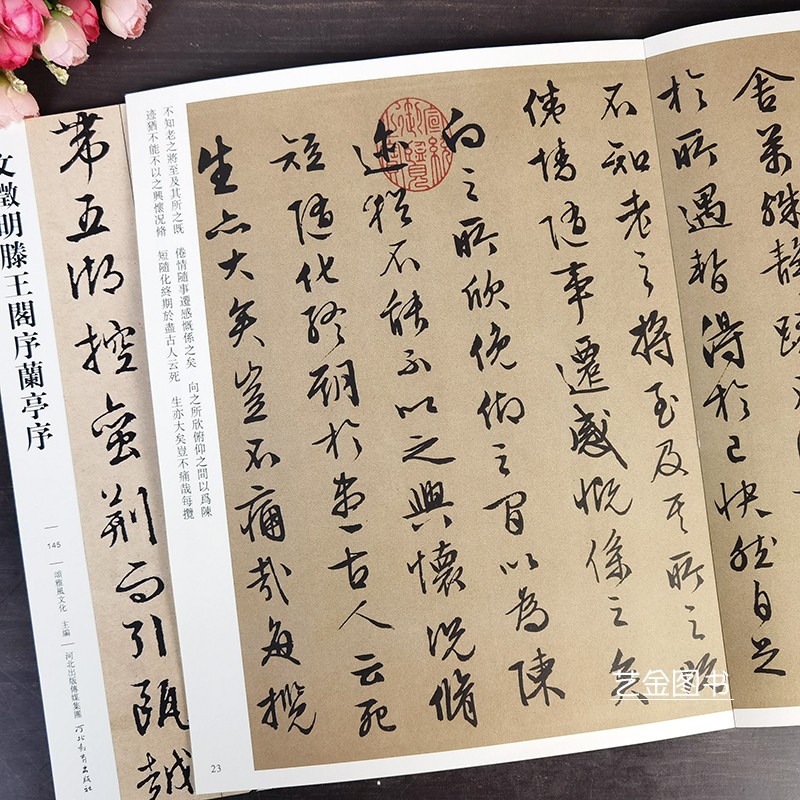 舍萬殊靜躁
於所遇暫得於己快然自足
不知老之將至及其所之既
倦情隨事遷感慨係之矣
向之所欣俛仰之間以為陳
迹猶不能不以之興懷況脩
短隨化終期於盡古人云死
生亦大矣豈不痛哉每攬
不知老之將至及其所之既　倦情隨事遷感慨係之矣　向之所欣俯仰之間以爲陳
迹猶不能不以之興懷况脩　短隨化終期於盡古人云死　生亦大矣豈不痛哉每攬
23
帶五湖控蠻荊而引甌越
文徵明滕王閣序蘭亭序
145
頌雅風文化　主編
河北出版傳媒集團
河北教育出版社
艺金图书